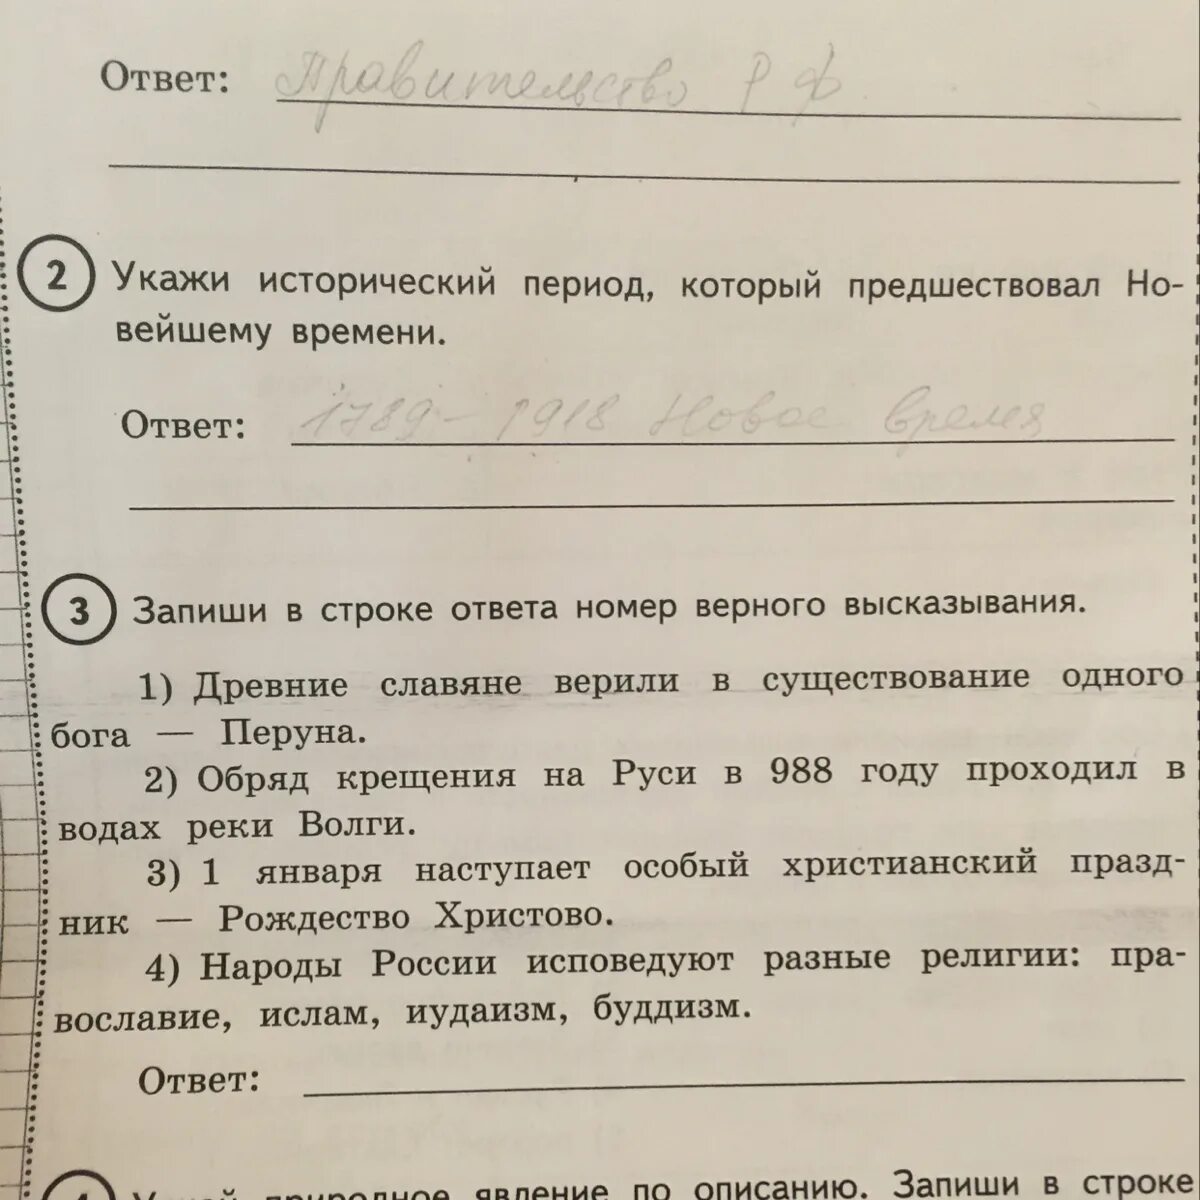 Ответ: Правительство РФ
2 Укажи исторический период, который предшествовал Но-
вейшему времени.
Ответ: 1789 – 1918 Новое время
3 Запиши в строке ответа номер верного высказывания.
1) Древние славяне верили в существование одного
бога — Перуна.
2) Обряд крещения на Руси в 988 году проходил в
водах реки Волги.
3) 1 января наступает особый христианский празд-
ник — Рождество Христово.
4) Народы России исповедуют разные религии: пра-
вославие, ислам, иудаизм, буддизм.
Ответ:
природное явление по описанию. Запиши в строке